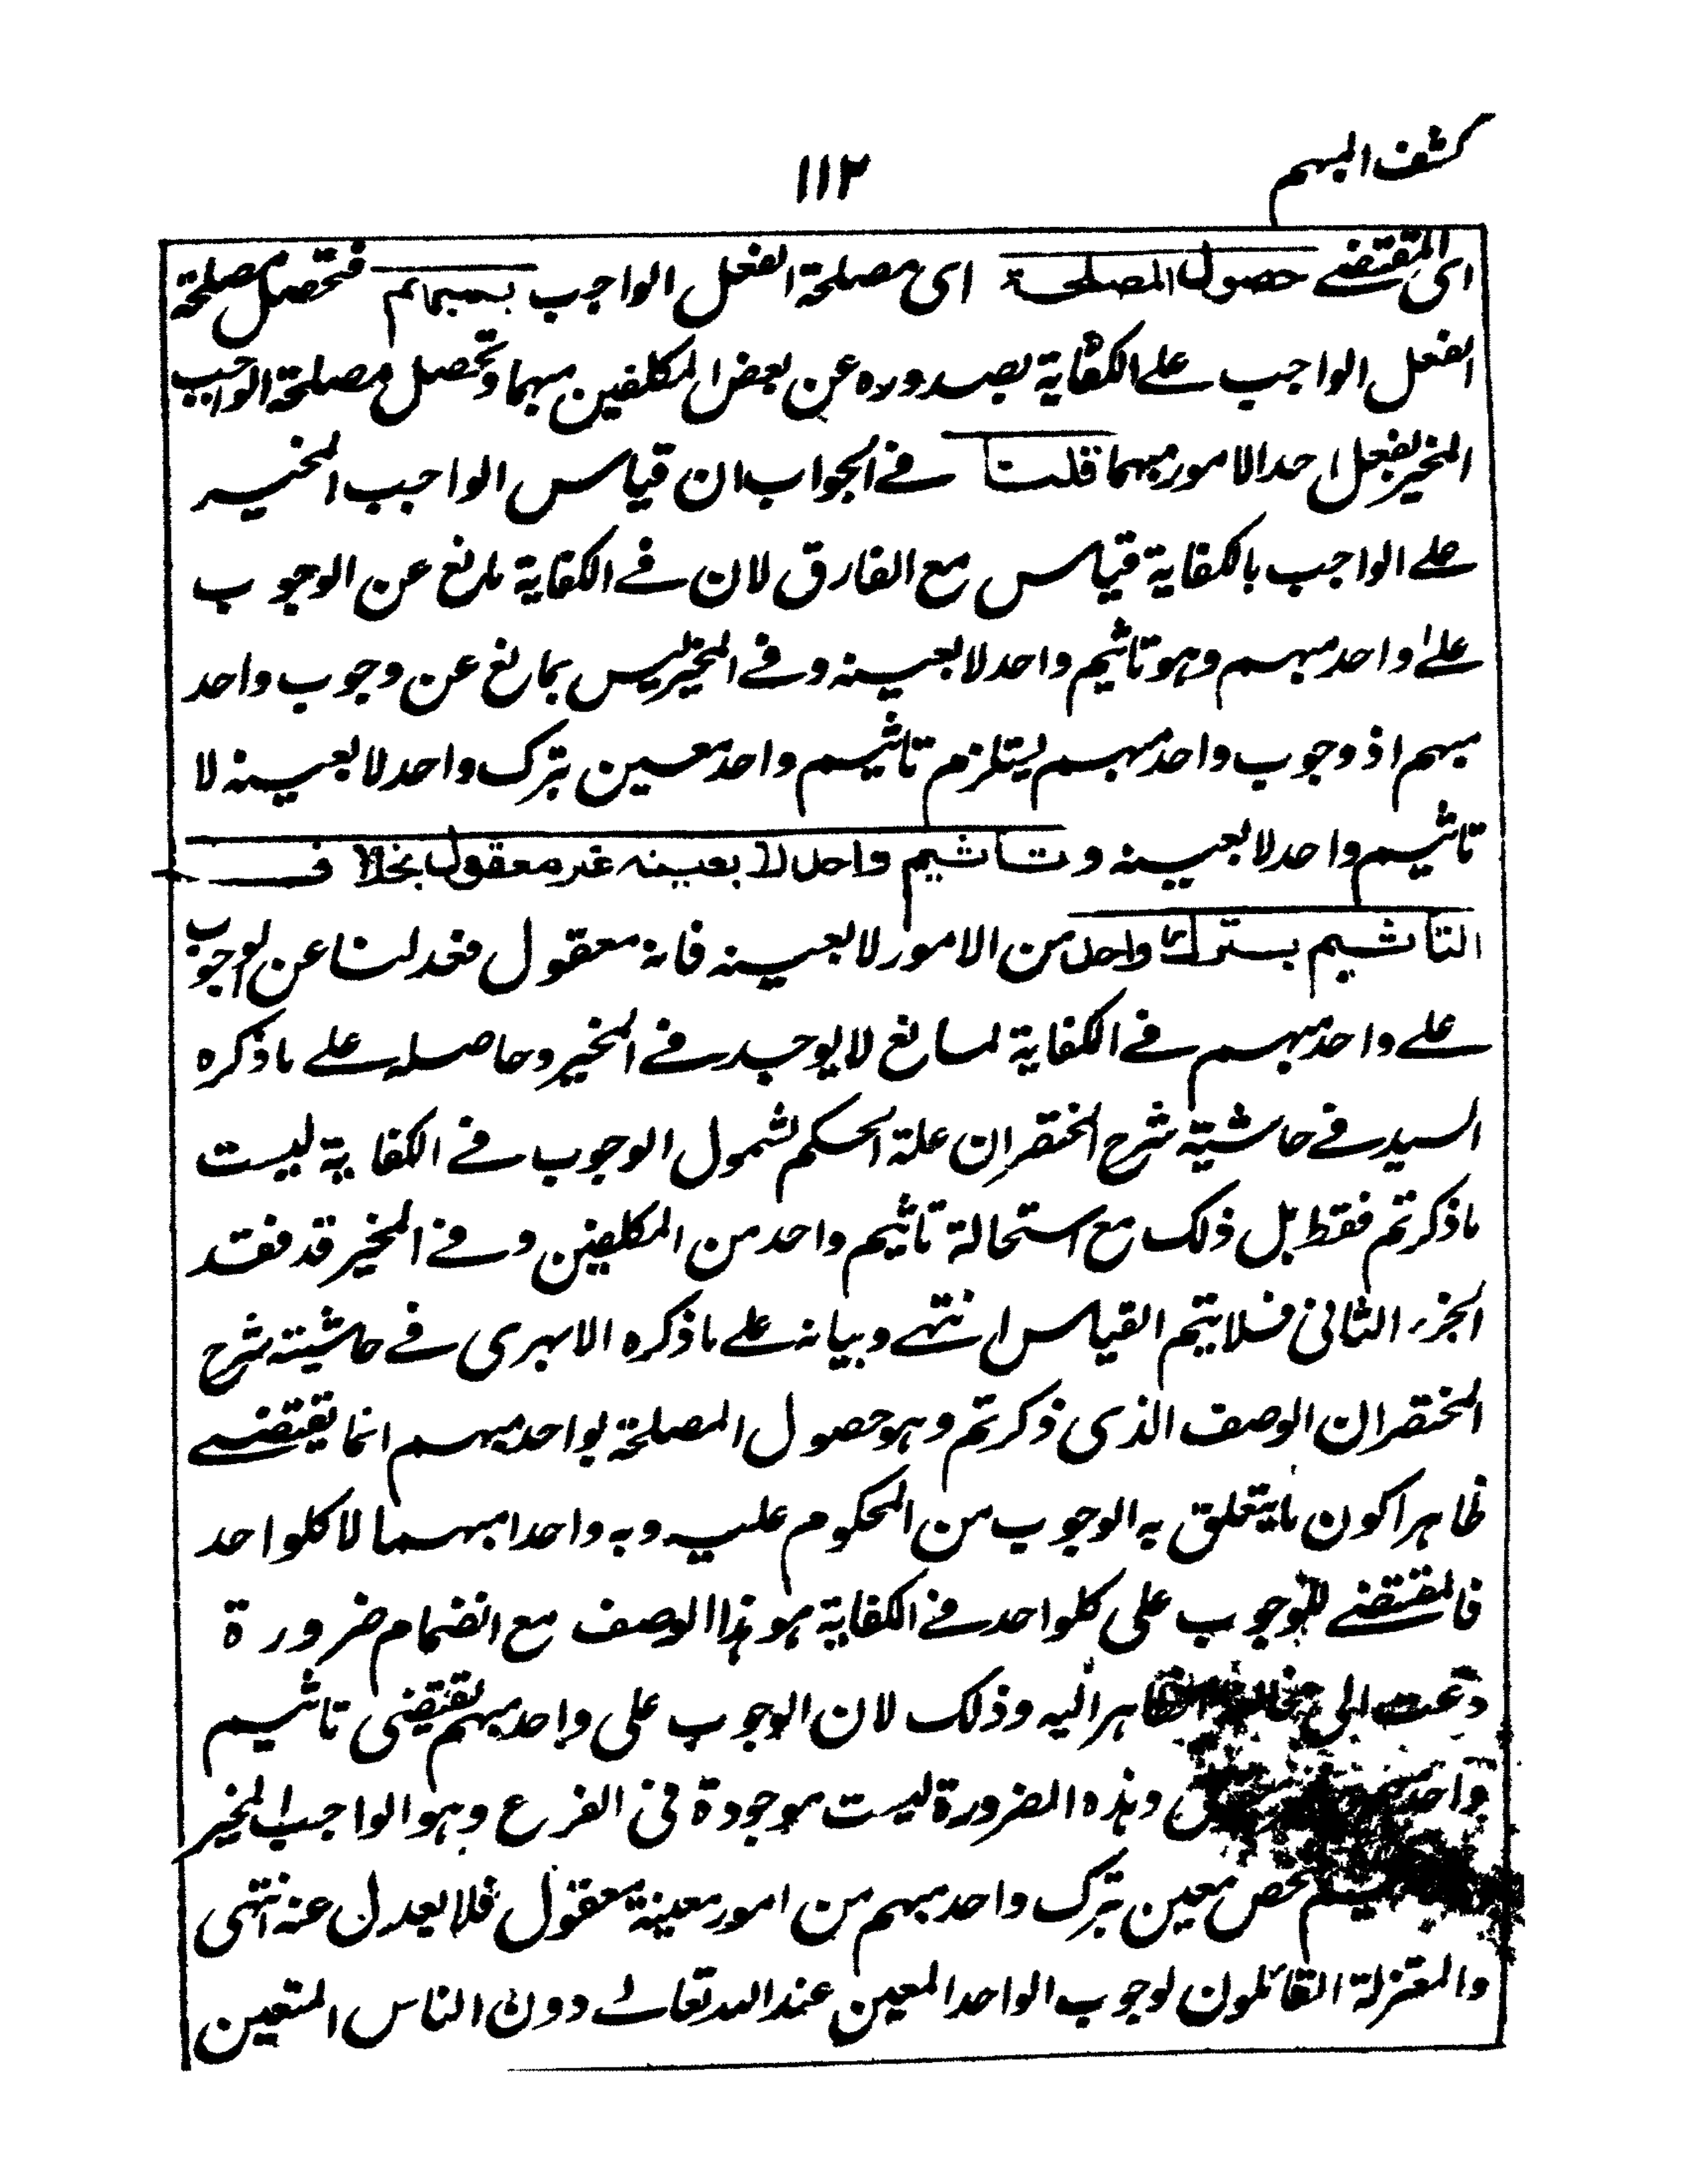 كشف المبهم
١١٢
اى المقتضے حصول المصلحة اى مصلحة الفعل الواجب بمبهم فتحصل مصلحة
الفعل الواجب علے الكفاية بصدوره عن بعض المكلفين مبهما وتحصل مصلحة الواجب
المخير بفعل احد الامور مبهما قلنا فے الجواب ان قياس الواجب المخير
علے الواجب بالكفاية قياس مع الفارق لان فے الكفاية مانع عن الوجوب
علے واحد مبهم وهو تاثيم واحد لا بعينه وفے المخير ليس بمانع عن وجوب واحد
مبهم اذ وجوب واحد مبهم يستلزم تاثيم واحد معين بترك واحد لا بعينه لا
تاثيم واحد لا بعينه و تاثيم واحد لا بعينه غير معقول بخلاف
التاثيم بترك واحد من الامور لا بعينه فانه معقول فعدلنا عن الوجوب
علے واحد مبهم فے الكفاية لمانع لا يوجد فے المخير وحاصله علے ما ذكره
السيد فے حاشية شرح المختصر ان علة الحكم لشمول الوجوب فے الكفاية ليست
ما ذكرتم فقط بل ذلك مع استحالة تاثيم واحد من المكلفين وفے المخير قد فقد
الجزء الثانى فلا يتم القياس انتهے وبيانه علے ما ذكره الابهرى فے حاشيته شرح
المختصر ان الوصف الذى ذكرتم وهو حصول المصلحة بواحد مبهم انما يقتضے
ظاهرا كون ما يتعلق به الوجوب من المحكوم عليه وبه واحدا مبهما لا كلواحد
فالمقتضے للوجوب على كلواحد فے الكفاية هو هذا الوصف مع انضمام ضرورة
دعت الى الظاهر اليه وذلك لان الوجوب على واحد مبهم يقتضى تاثيم
واحد وهذه الضرورة ليست بموجودة فى الفرع وهو الواجب المخير
معين بترك واحد مبهم من امور معينة معقول فلا يعدل عنه انتهى
والمعتزلة القائلون لوجوب الواحد المعين عند الله تعالے دون الناس المتعين